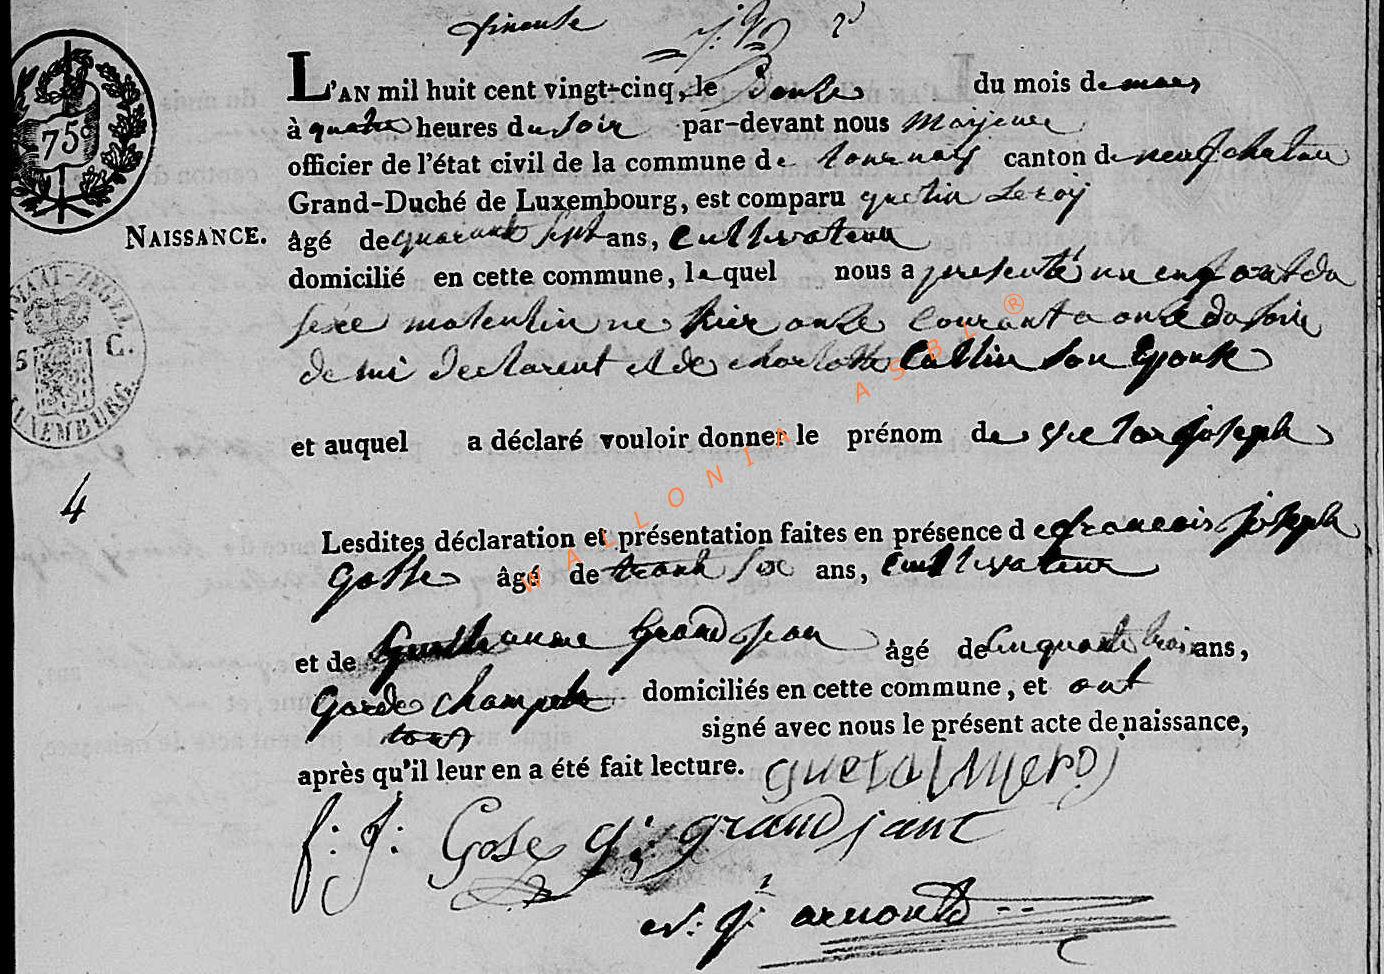 75c
L'AN mil huit cent vingt-cinq, le douze du mois de mars
à quatre heures du soir par-devant nous
officier de l'état civil de la commune de tournay canton de neufchateau
Grand-Duché de Luxembourg, est comparu Leroy
NAISSANCE. âgé de quarante sept ans, Cultivateur
domicilié en cette commune, lequel nous a presenté un enfant du
sexe masculin né hier onze courant a onze du soir
de mi declarent et de charlotte son Epouse
et auquel a déclaré vouloir donner le prénom de victor joseph
4
Lesdites déclaration et présentation faites en présence de francois joseph
Gosse âgé de trente six ans, Cultivateur
et de Guillaume Grand jean âgé de Cinquante trois ans,
Garde champetre domiciliés en cette commune, et ont
tous signé avec nous le présent acte de naissance,
après qu'il leur en a été fait lecture.
f: J: Gose g: grandjant
j: arnould
MAAT-ZEGEL 5 C. LUXEMBURG.
WALLONIA ASBL ®